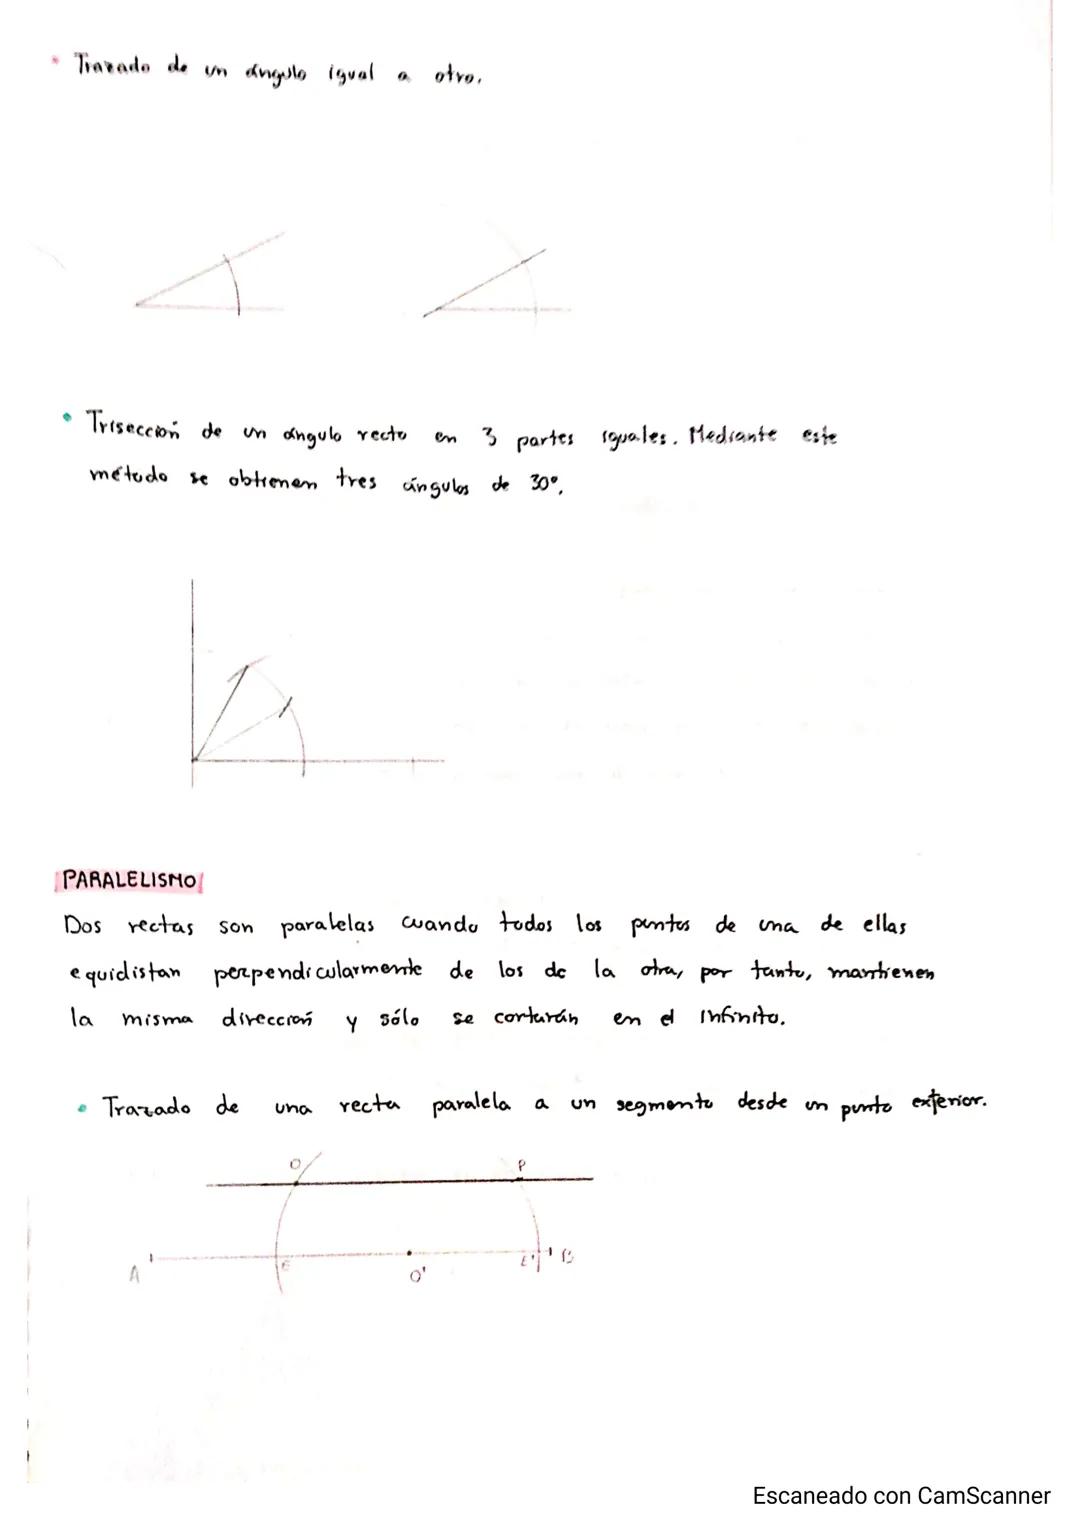 Trazado de un ángulo igual a otro.
Trisección de un ángulo recto en 3 partes iguales. Mediante este
método se obtienen tres ángulos de 30°.
PARALELISMO
Dos rectas son paralelas cuando todos los puntos de una de ellas
equidistan perpendicularmente de los de la otra, por tanto, mantienen
la misma dirección y sólo se cortarán en el infinito.
Trazado de una recta paralela a un segmento desde un punto exterior.
O P
A E O' E' B
Escaneado con CamScanner